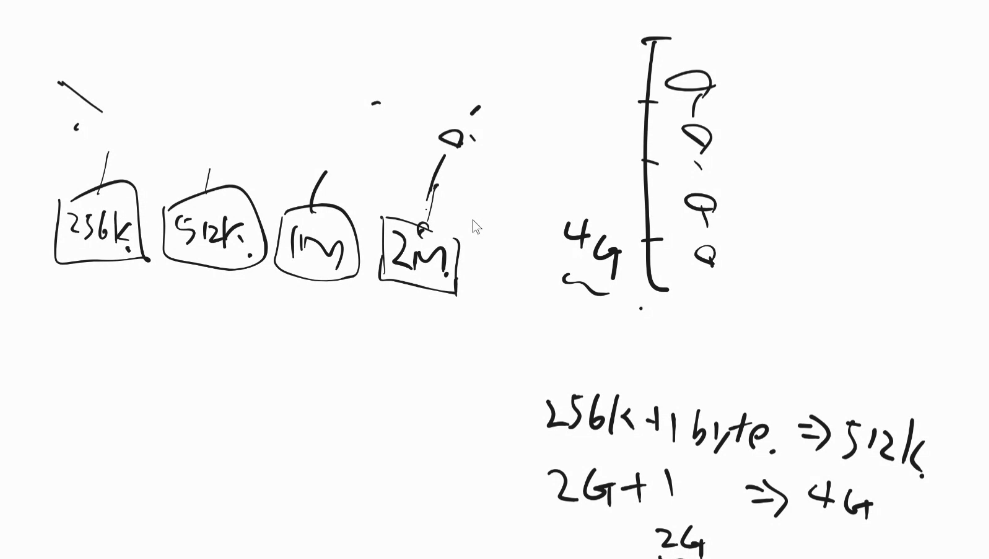 256k.
512k.
1M
2M.
4G
256k+1byte. => 512k.
2G+1 => 4G
2G